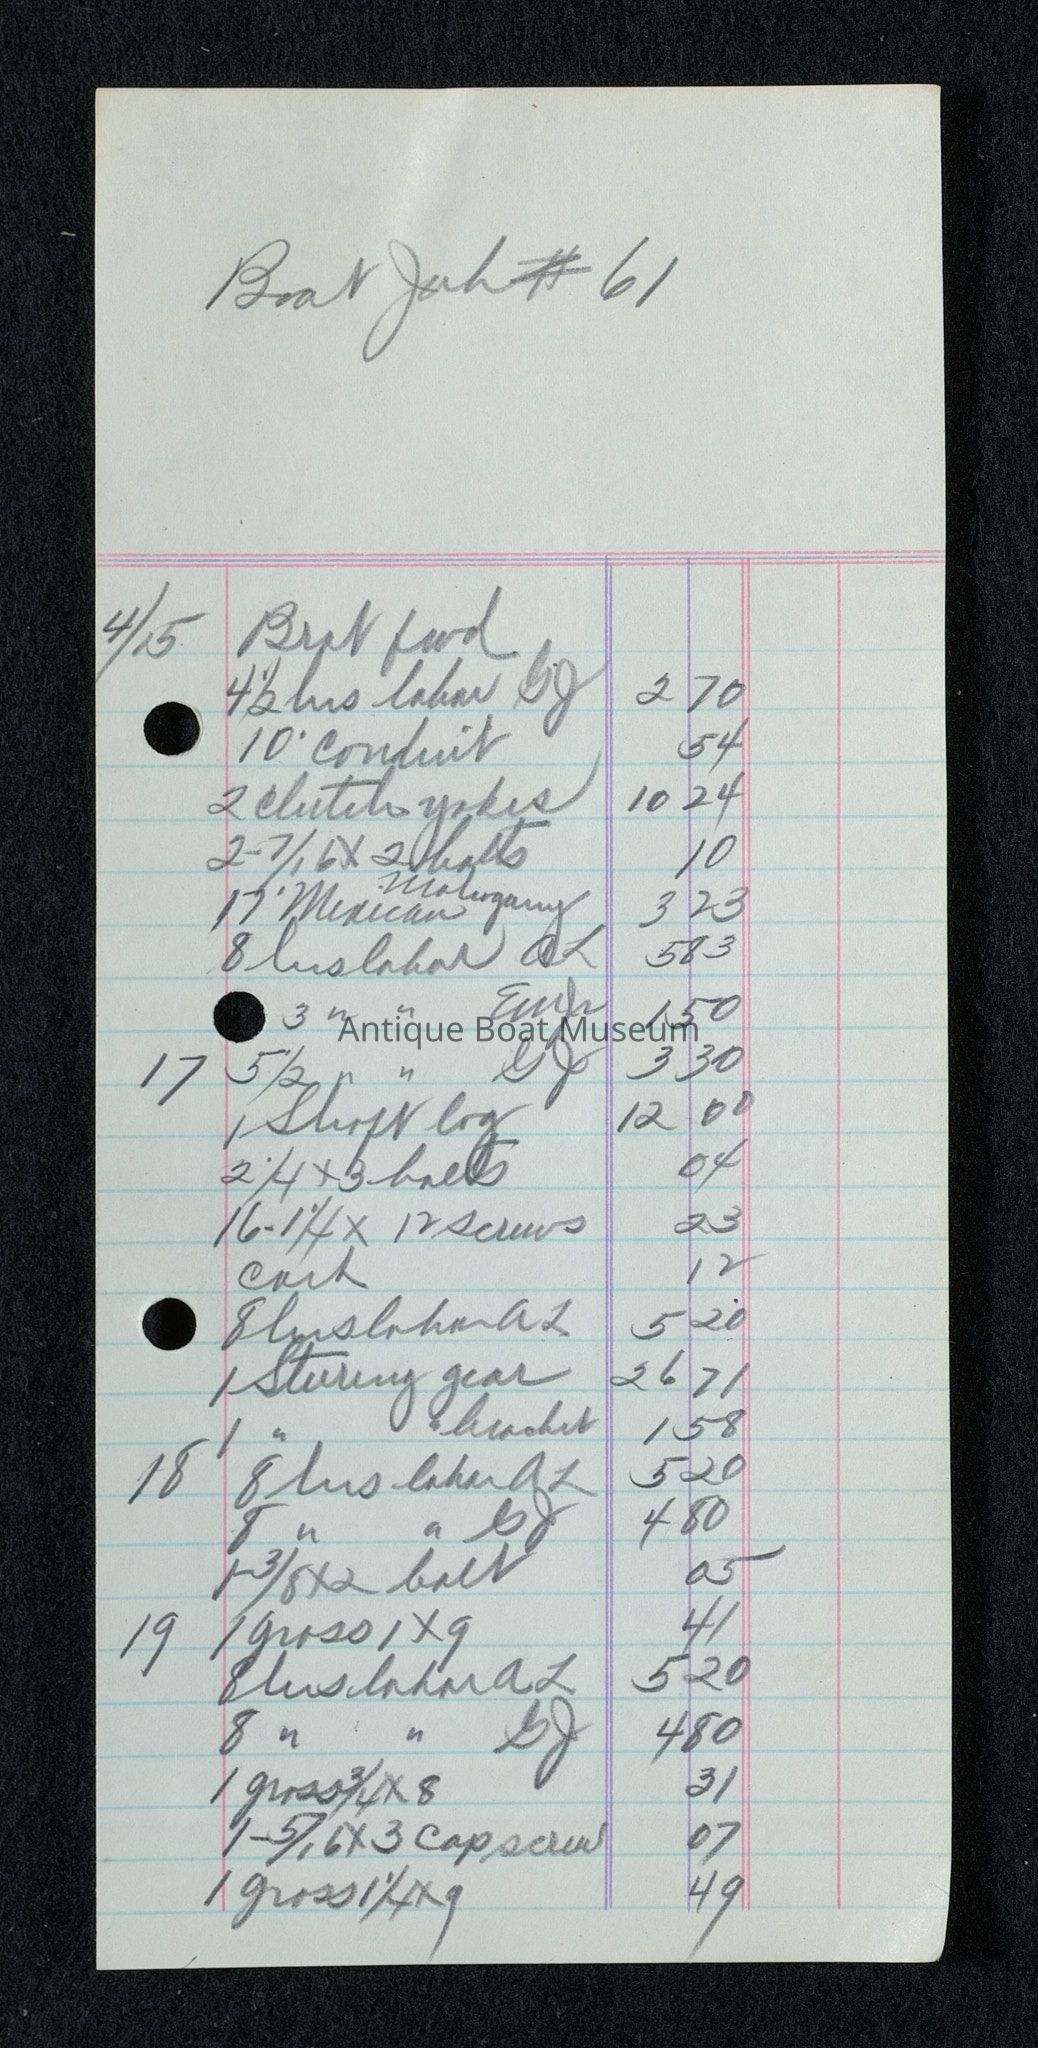 Boat Job # 61
4/15 Brot fwd
4 1/2 hrs labor GJ 2 70
10' conduit 54
2 clutch yokes 10 24
2-7/16 x 2 bolts 10
Mahogany
17' Mexican 3 23
8 hrs labor AL 5 83
3 " " 1 50
Antique Boat Museum
17 5 1/2 " " GJ 3 30
1 Shaft log 12 00
2 1/4 x 3 bolts 04
16-1 1/4 x 12 screws 23
12
8 hrs labor AL 5 20
1 Steering gear 26 71
1 " " bracket 1 58
18 8 hrs labor AL 5 20
8 " " GJ 4 80
1-3/8 x 2 bolt 05
19 1 gross 1 x 9 41
8 hrs labor AL 5 20
8 " " GJ 4 80
1 gross 3/4 x 8 31
1-5/16 x 3 cap screw 07
1 gross 1 1/4 x 9 49